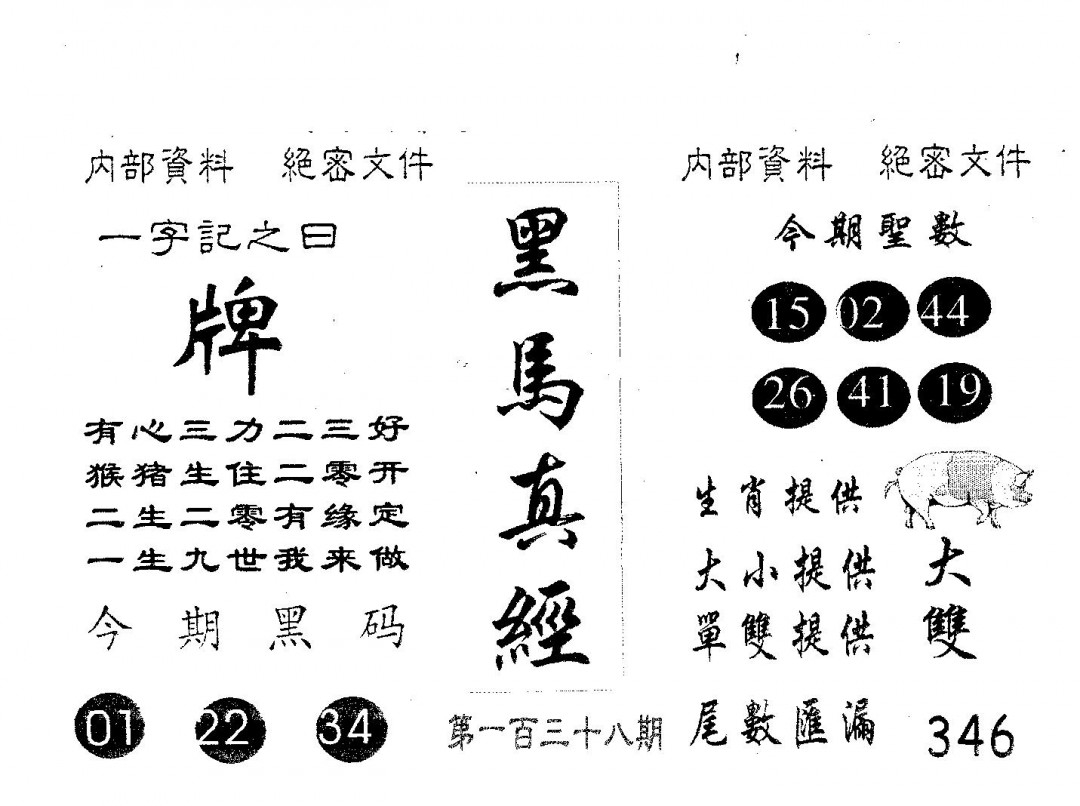 内部資料 絕密文件
一字記之曰
牌
有心三力二三好
猴猪生住二零开
二生二零有缘定
一生九世我来做
今期黑码
01 22 34
黑馬真經
第一百三十八期
内部資料 絕密文件
今期聖數
15 02 44
26 41 19
生肖提供
大小提供 大
單雙提供 雙
尾數匯漏 346